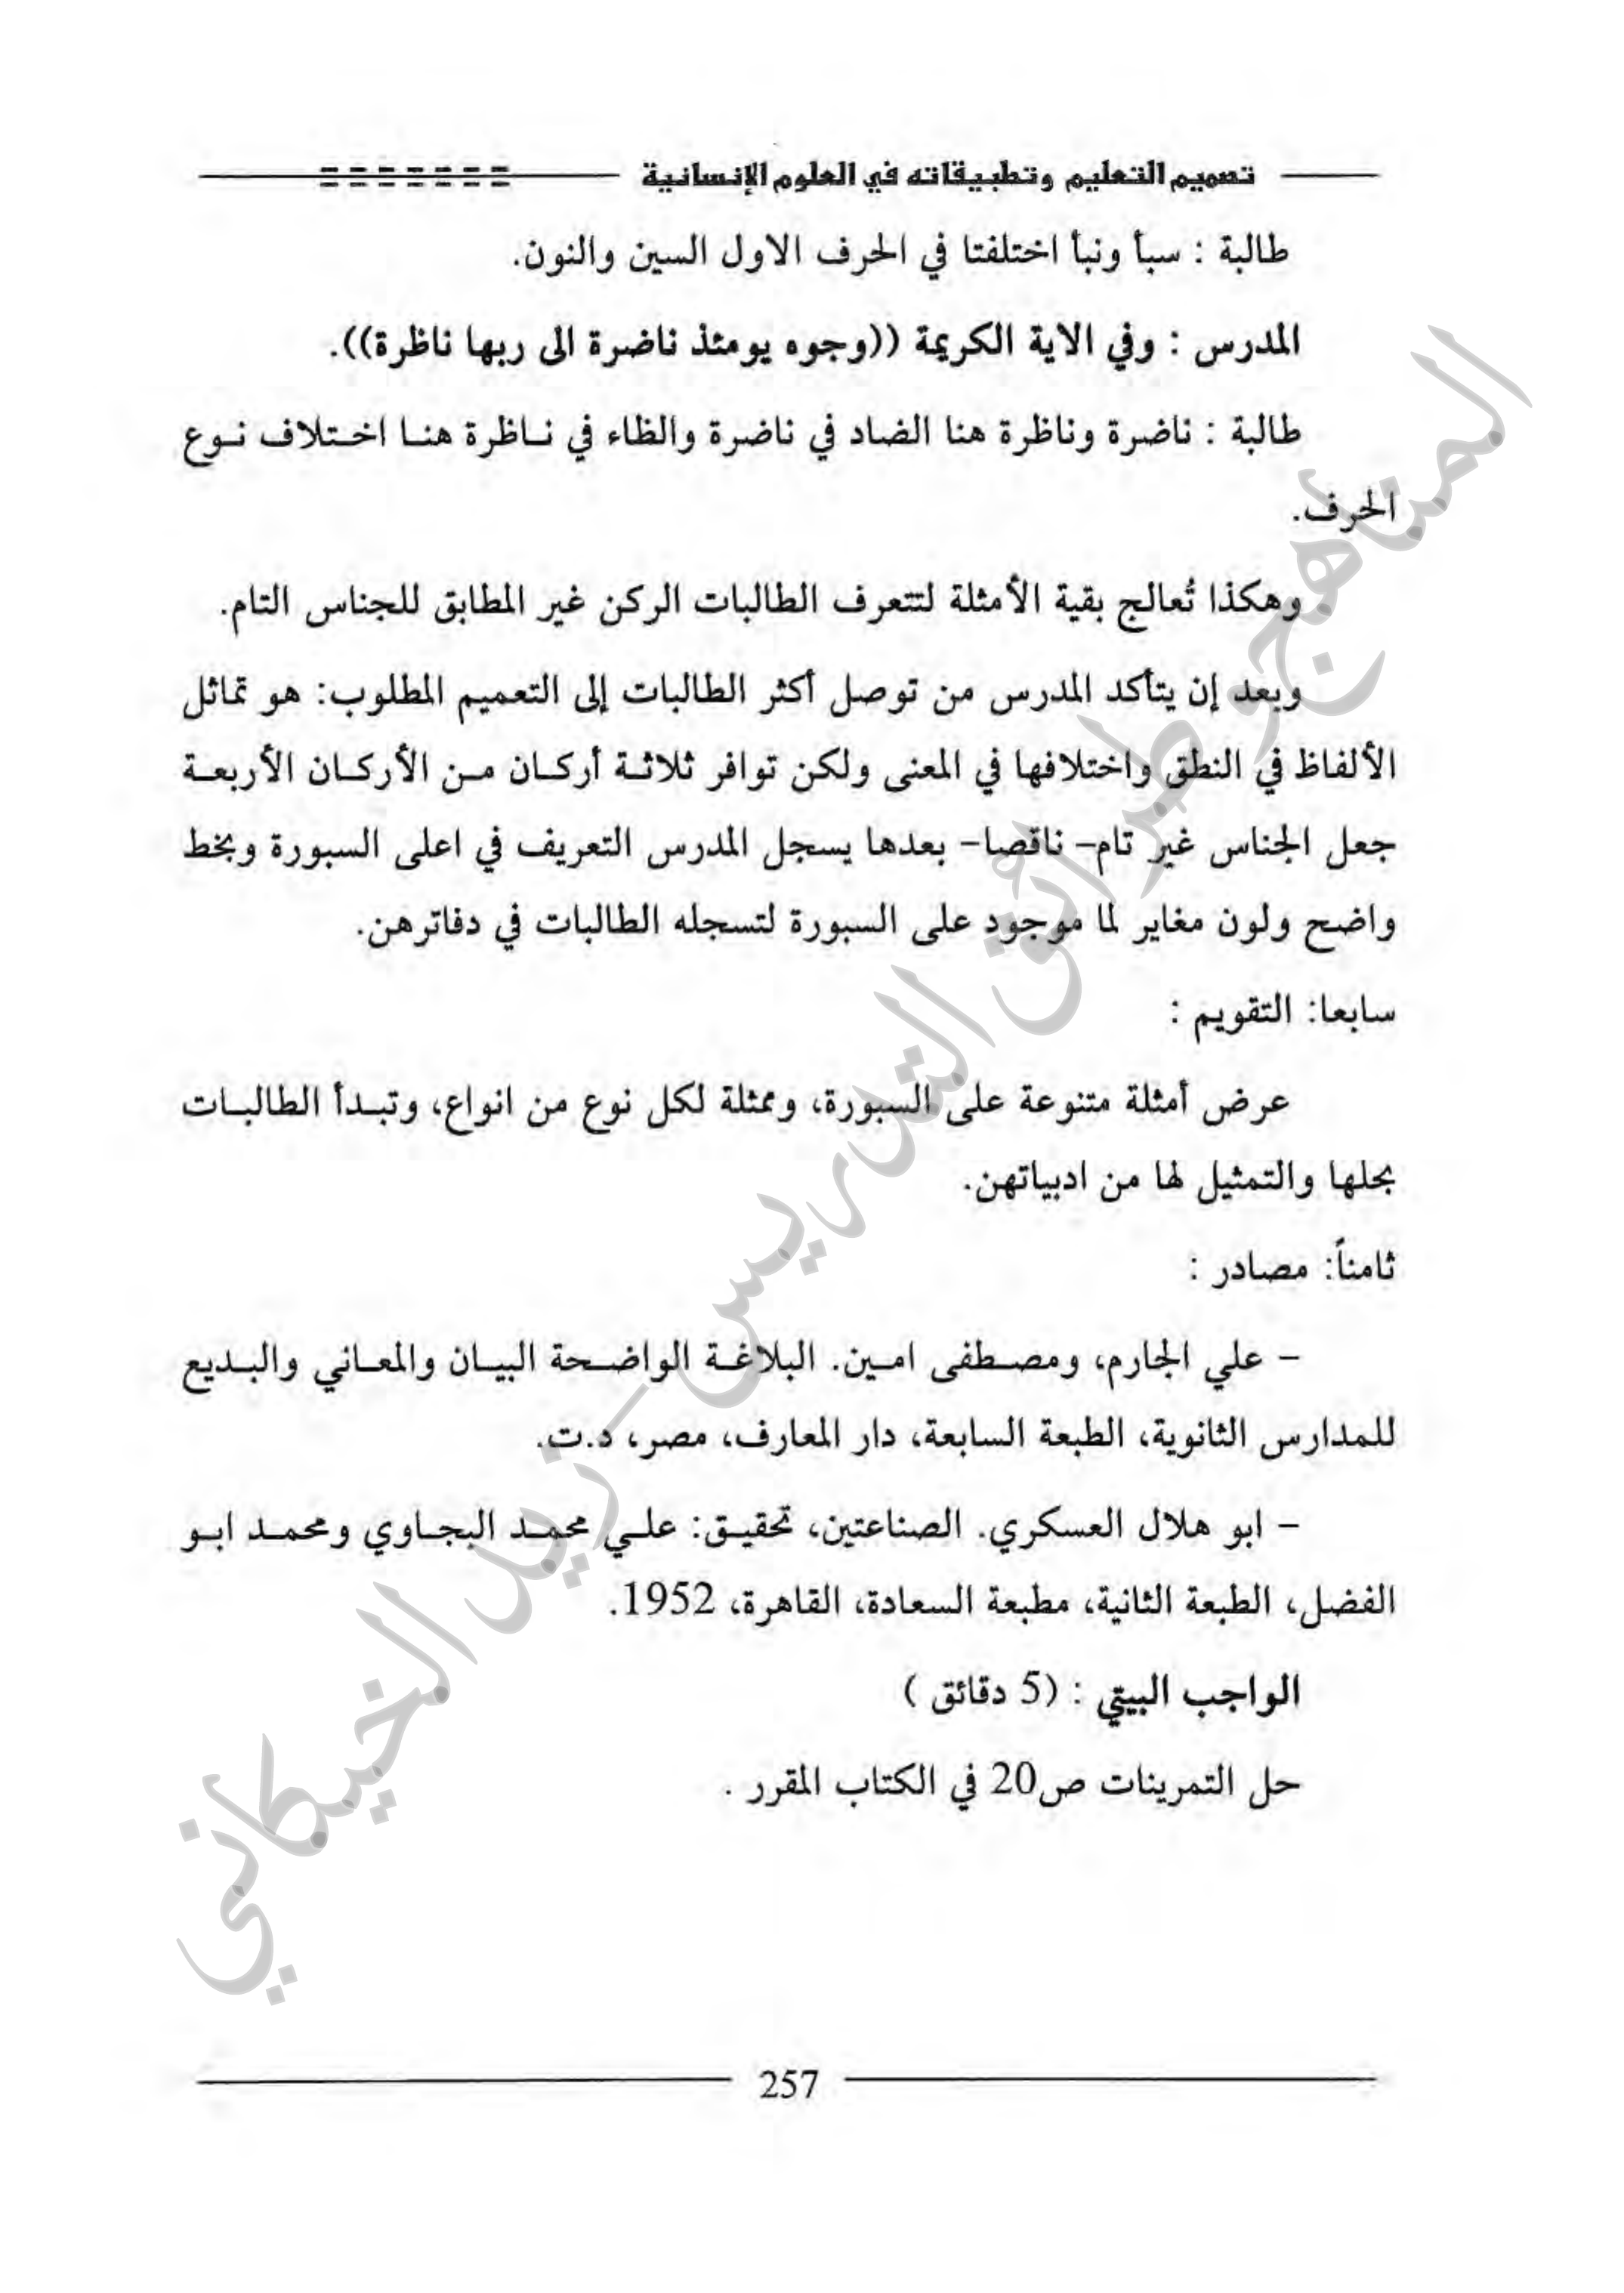 تصميم التعليم وتطبيقاته في العلوم الإنسانية
طالبة : سبأ ونبأ اختلفتا في الحرف الاول السين والنون.
المدرس : وفي الاية الكريمة ((وجوه يومئذ ناضرة الى ربها ناظرة)).
طالبة : ناضرة وناظرة هنا الضاد في ناضرة والظاء في نـاظرة هنـا اخـتلاف نـوع
الحرف.
وهكذا تُعالج بقية الأمثلة لتتعرف الطالبات الركن غير المطابق للجناس التام.
وبعد إن يتأكد المدرس من توصل أكثر الطالبات إلى التعميم المطلوب: هو تماثل
الألفاظ في النطق واختلافها في المعنى ولكن توافر ثلاثـة أركـان مـن الأركـان الأربعـة
جعل الجناس غير تام- ناقصا- بعدها يسجل المدرس التعريف في اعلى السبورة وبخط
واضح ولون مغاير لما موجود على السبورة لتسجله الطالبات في دفاترهن.
سابعا: التقويم :
عرض أمثلة متنوعة على السبورة، وممثلة لكل نوع من انواع، وتبـدأ الطالبـات
بحلها والتمثيل لها من ادبياتهن.
ثامناً: مصادر :
– علي الجارم، ومصـطفى امـين. البلاغـة الواضـحة البيـان والمعـاني والبـديع
للمدارس الثانوية، الطبعة السابعة، دار المعارف، مصر، د.ت.
– ابو هلال العسكري. الصناعتين، تحقيـق: علـي محمـد البجـاوي ومحمـد ابـو
الفضل، الطبعة الثانية، مطبعة السعادة، القاهرة، 1952.
الواجب البيتي : (5 دقائق )
حل التمرينات ص20 في الكتاب المقرر .
257
المناهج وطرائق التدريس – زيد الخيكاني